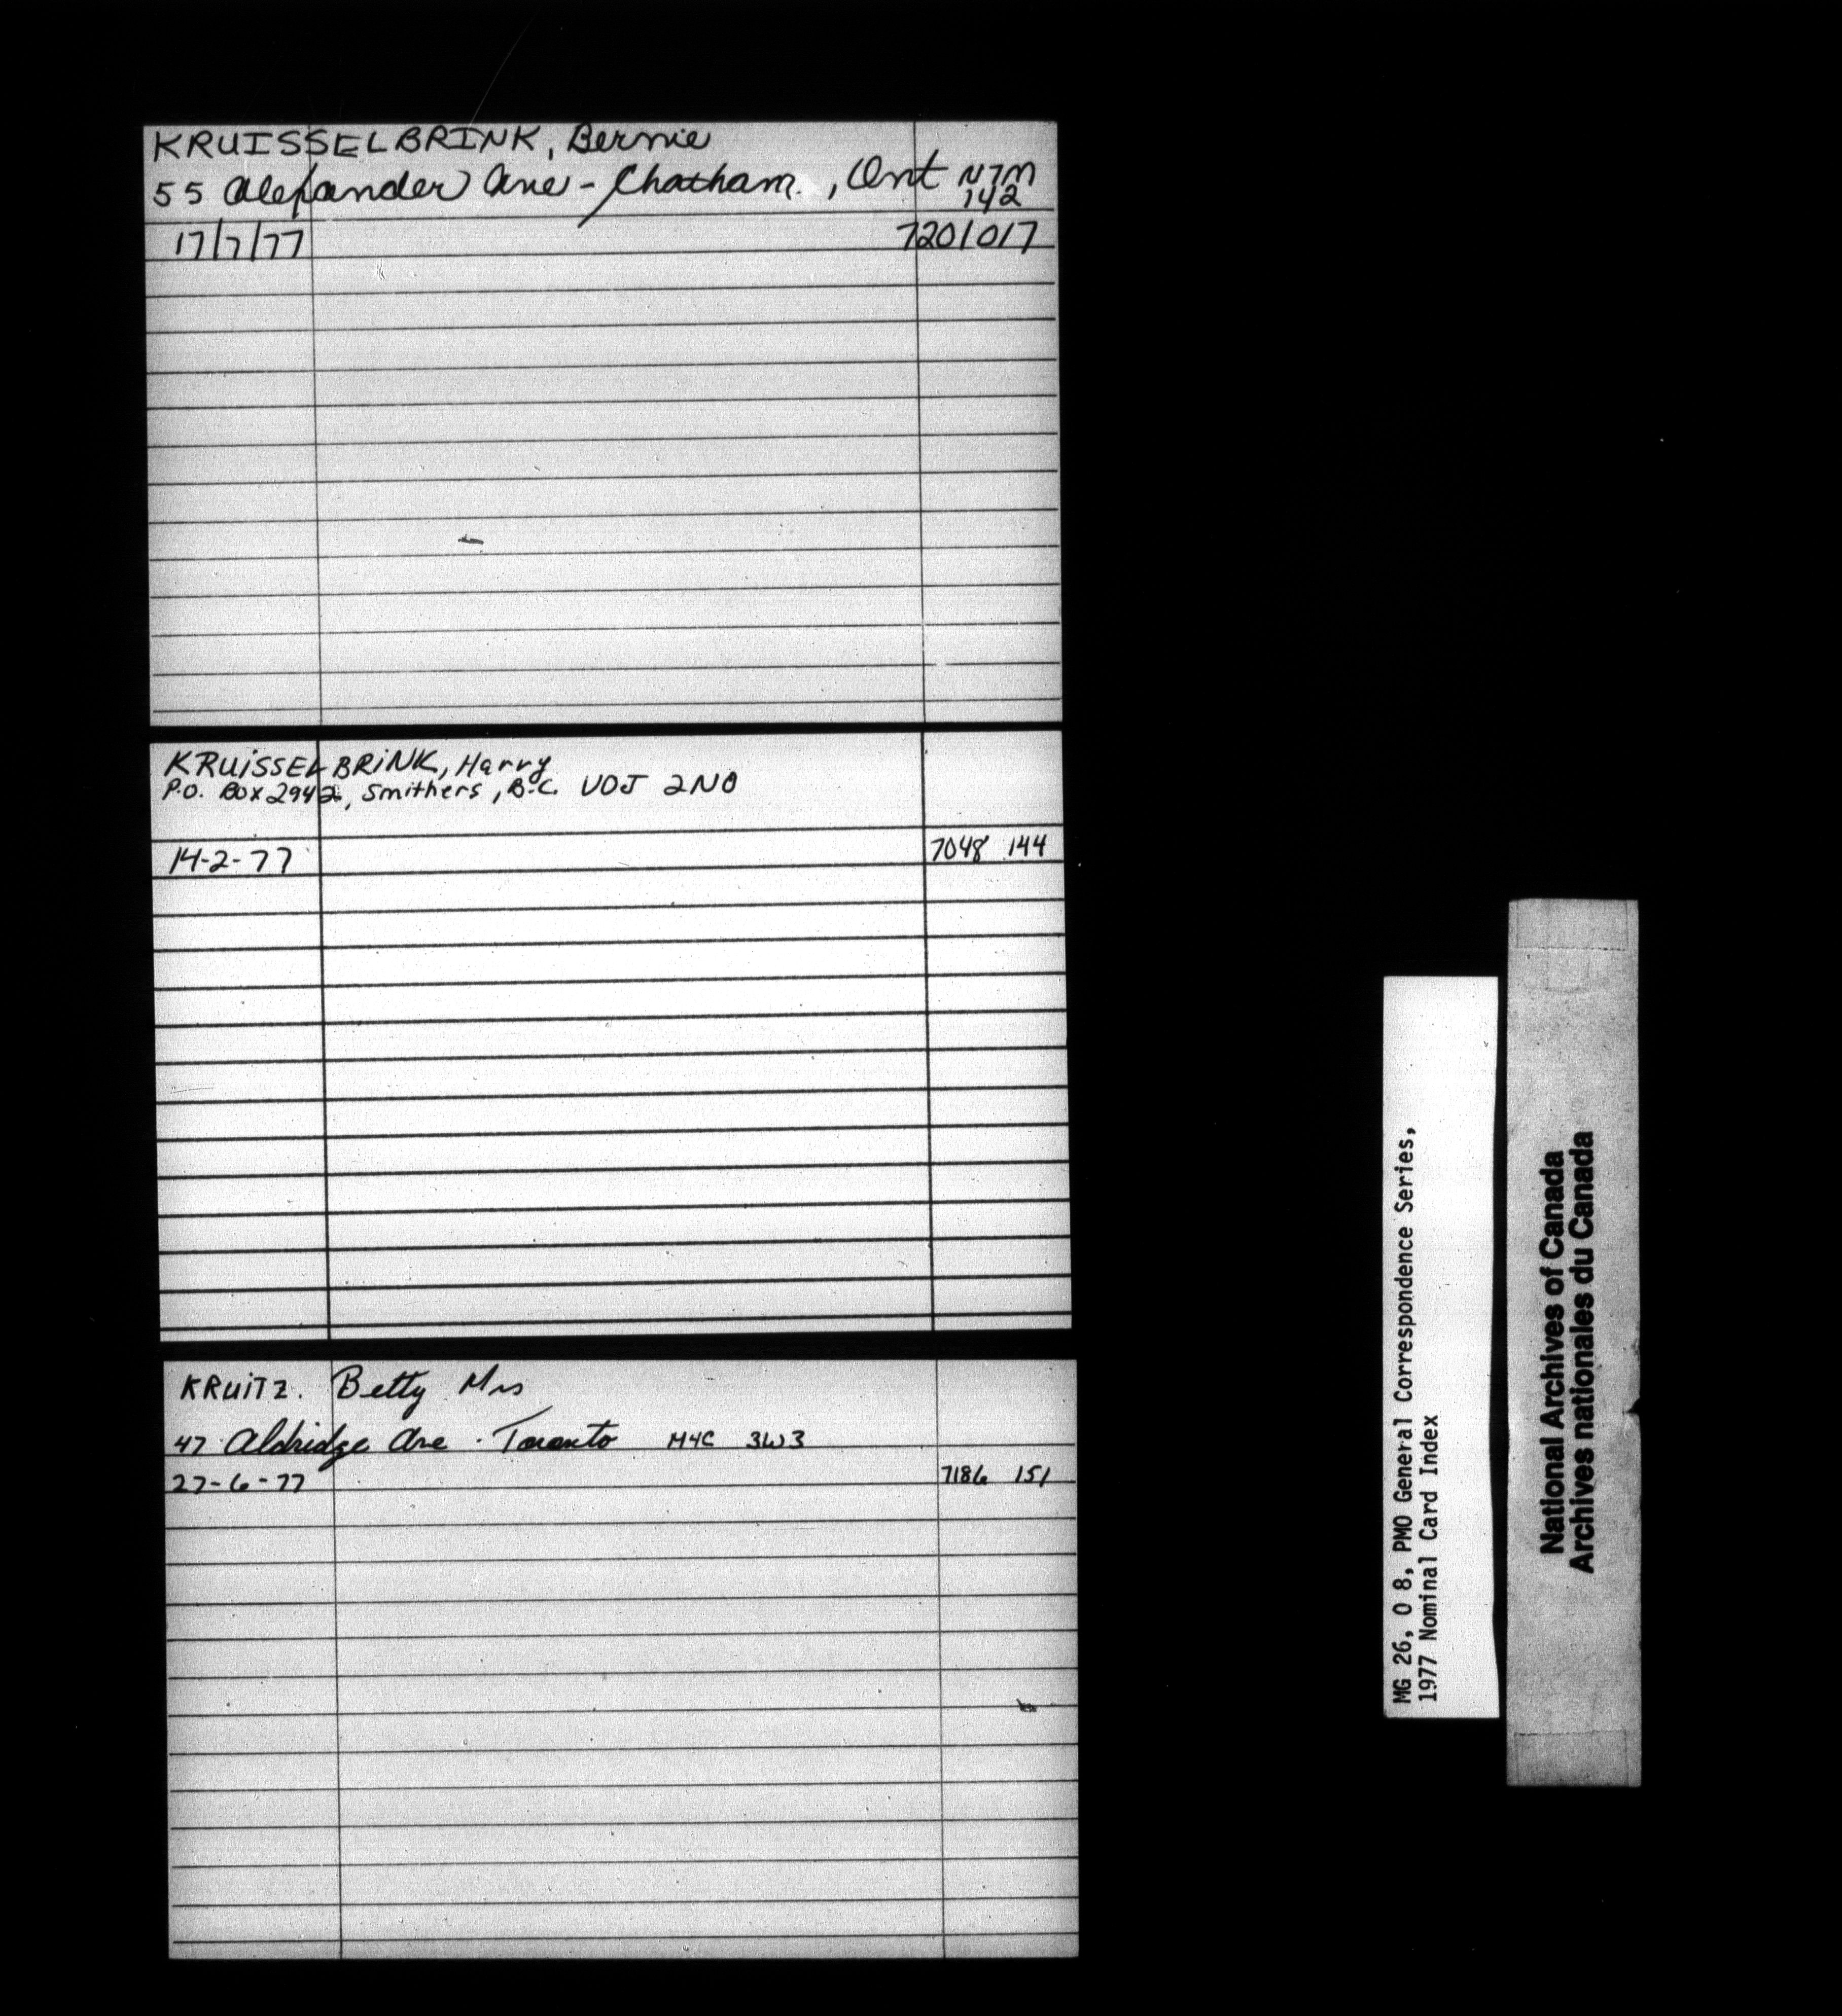 KRUISSELBRINK, Bernie
55 Alexander Ave - Chatham., Ont N7M
1Y2
17/7/77 7201017
KRUiSSELBRiNK, Harry
P.O. Box 2942, Smithers, B.C. VOJ 2NO
14-2-77 7048 144
KRUITZ. Betty Mrs
47 Aldridge Ave. Toronto M4C 3W3
27-6-77 7186 151
MG 26, O 8, PMO General Correspondence Series,
1977 Nominal Card Index
National Archives of Canada
Archives nationales du Canada